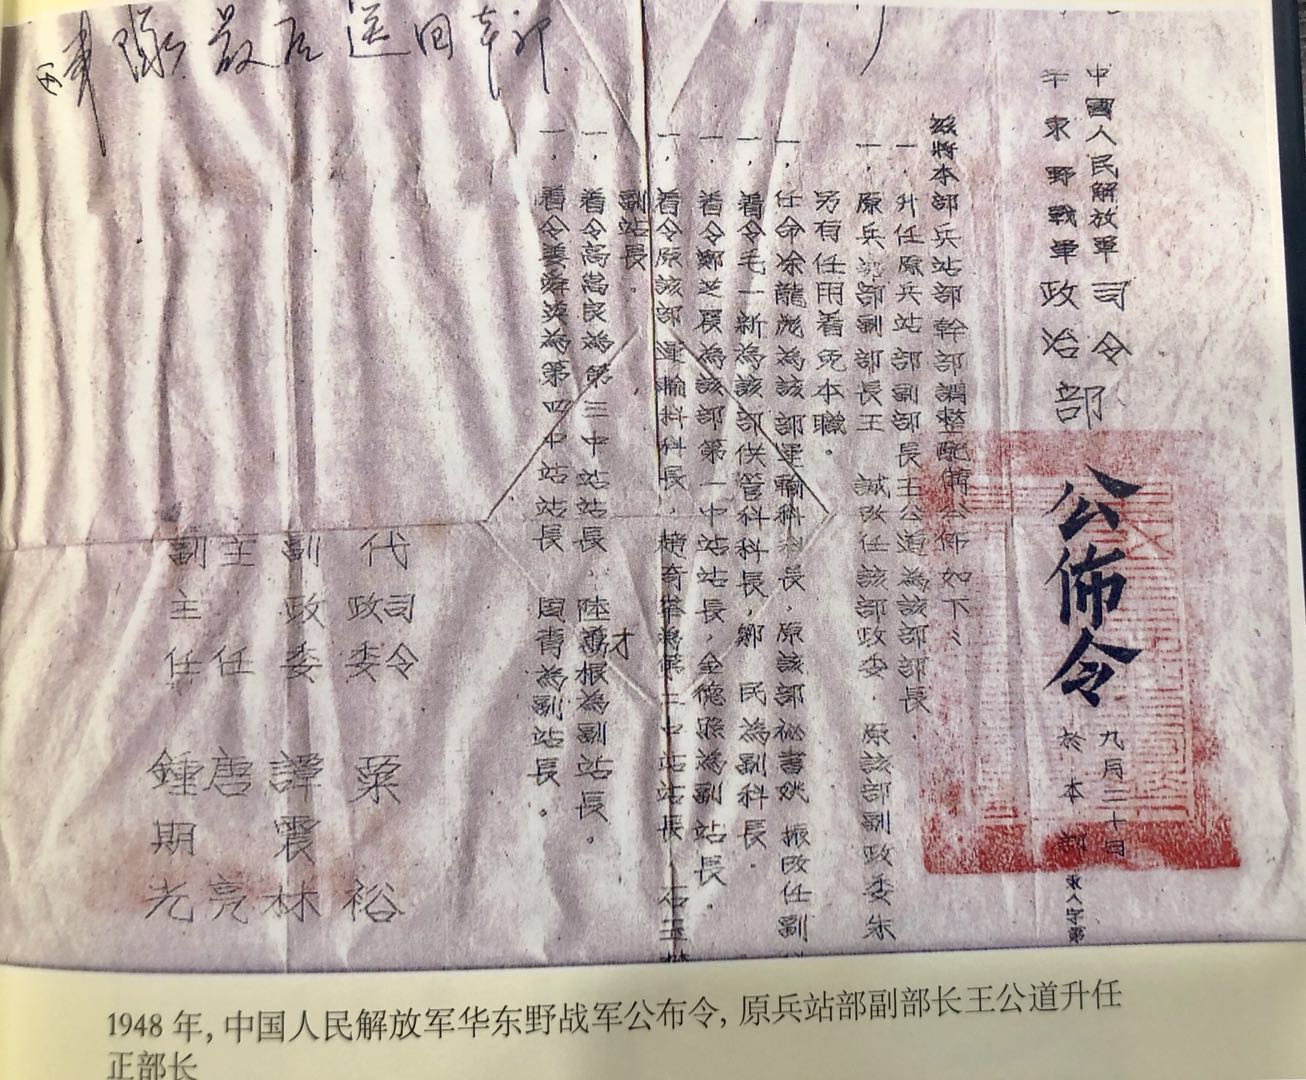 最后送回
中國人民解放軍司令
華東野戰軍政治部
公佈令
九月二十日
於本部
兹將本部兵站部幹部調整配備公佈如下:
一.升任原兵站部副部長王公道為該部部長
一.原兵站部副部長王 誠改任該部政委.原該部副政委朱
另有任用着免本職。
一.任命涂龍彪為該部運輸科科長.原該部祕書姚 振改任副
一.着令毛一新為該部供管科科長,鄭 民為副科長.
一.着令鄭芝履為該部第一中站站長,金德照為副站長.
一.着令原該部運輸科科長 第二中站站長.石玉
副站長.
一.着令高嵩良為第三中站站長.陸 根為副站長.
才
一.着令 為第四中站站長 周青為副站長.
代司令
政委 粟裕
副政委 譚震林
主任 唐亮
副主任 鍾期光
1948 年, 中国人民解放军华东野战军公布令, 原兵站部副部长王公道升任
正部长